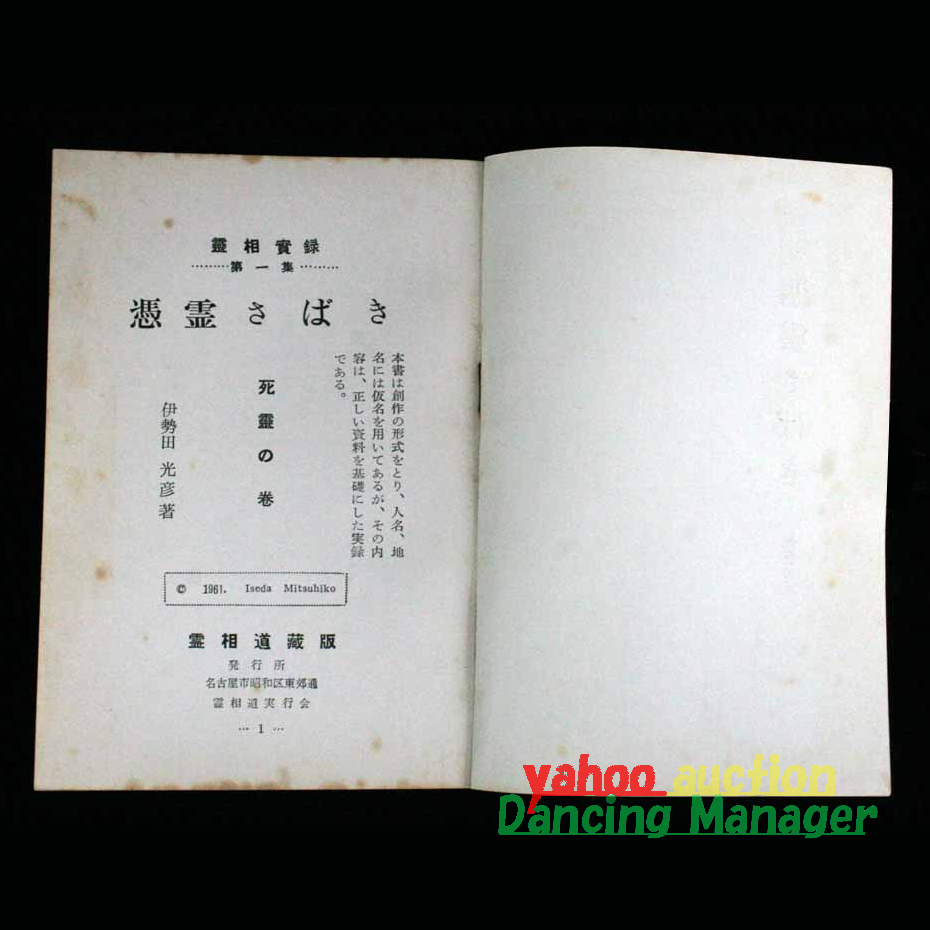 靈相實録
………第一集………
憑霊さばき
本書は創作の形式をとり、人名、地
名には仮名を用いてあるが、その内
容は、正しい資料を基礎にした実録
である。
死靈の巻
伊勢田 光彦 著
© 1961. Iseda Mitsuhiko
霊相道藏版
発行所
名古屋市昭和区東郊通
霊相道実行会
… 1 …
yahoo auction
Dancing Manager